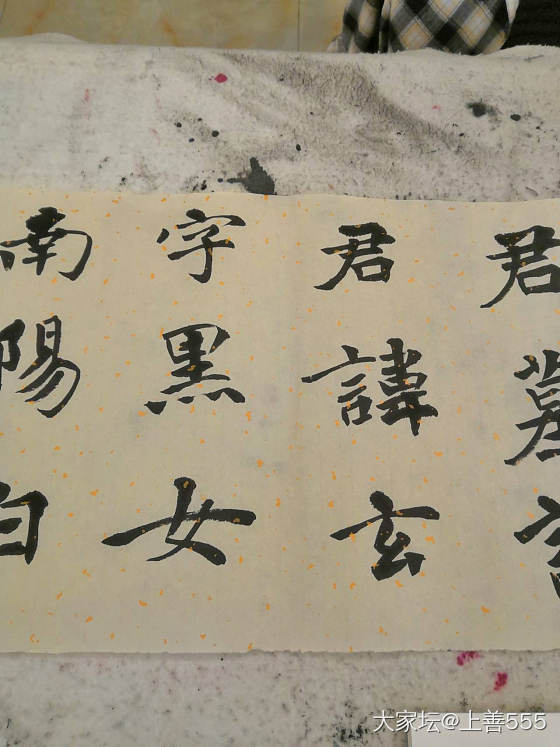 君墓
君諱玄
字黑女
南陽白
大家坛@上善555